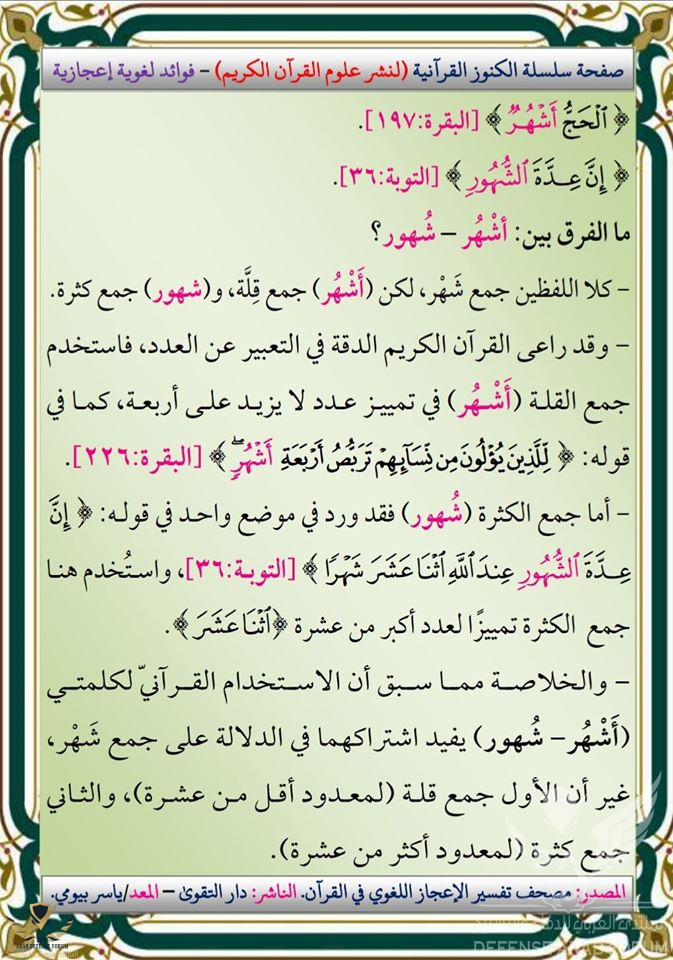 صفحة سلسلة الكنوز القرآنية (لنشر علوم القرآن الكريم) – فوائد لغوية إعجازية
﴿ ٱلْحَجُّ أَشْهُرٌ ﴾ [البقرة:١٩٧].
﴿ إِنَّ عِدَّةَ ٱلشُّهُورِ ﴾ [التوبة:٣٦].
ما الفرق بين: أشْهُر – شُهور؟
– كلا اللفظين جمع شَهْر، لكن (أَشْهُر) جمع قِلَّة، و(شهور) جمع كثرة.
– وقد راعى القرآن الكريم الدقة في التعبير عن العدد، فاستخدم
جمع القلة (أَشْهُر) في تمييز عدد لا يزيد على أربعة، كما في
قوله: ﴿ لِّلَّذِينَ يُؤْلُونَ مِن نِّسَآئِهِمْ تَرَبُّصُ أَرْبَعَةِ أَشْهُرٍۖ ﴾ [البقرة:٢٢٦].
– أما جمع الكثرة (شُهور) فقد ورد في موضع واحد في قوله: ﴿ إِنَّ
عِدَّةَ ٱلشُّهُورِ عِندَ ٱللَّهِ ٱثْنَا عَشَرَ شَهْرًا ﴾ [التوبة:٣٦]، واستُخدم هنا
جمع الكثرة تمييزًا لعدد أكبر من عشرة ﴿ٱثْنَا عَشَرَ ﴾.
– والخلاصة مما سبق أن الاستخدام القرآنيّ لكلمتي
(أَشْهُر– شُهور) يفيد اشتراكهما في الدلالة على جمع شَهْر،
غير أن الأول جمع قلة (لمعدود أقل من عشرة)، والثاني
جمع كثرة (لمعدود أكثر من عشرة).
المصدر: مصحف تفسير الإعجاز اللغوي في القرآن. الناشر: دار التقوىٰ – المعد/ياسر بيومي.
ARAB DEFENSE FORUM